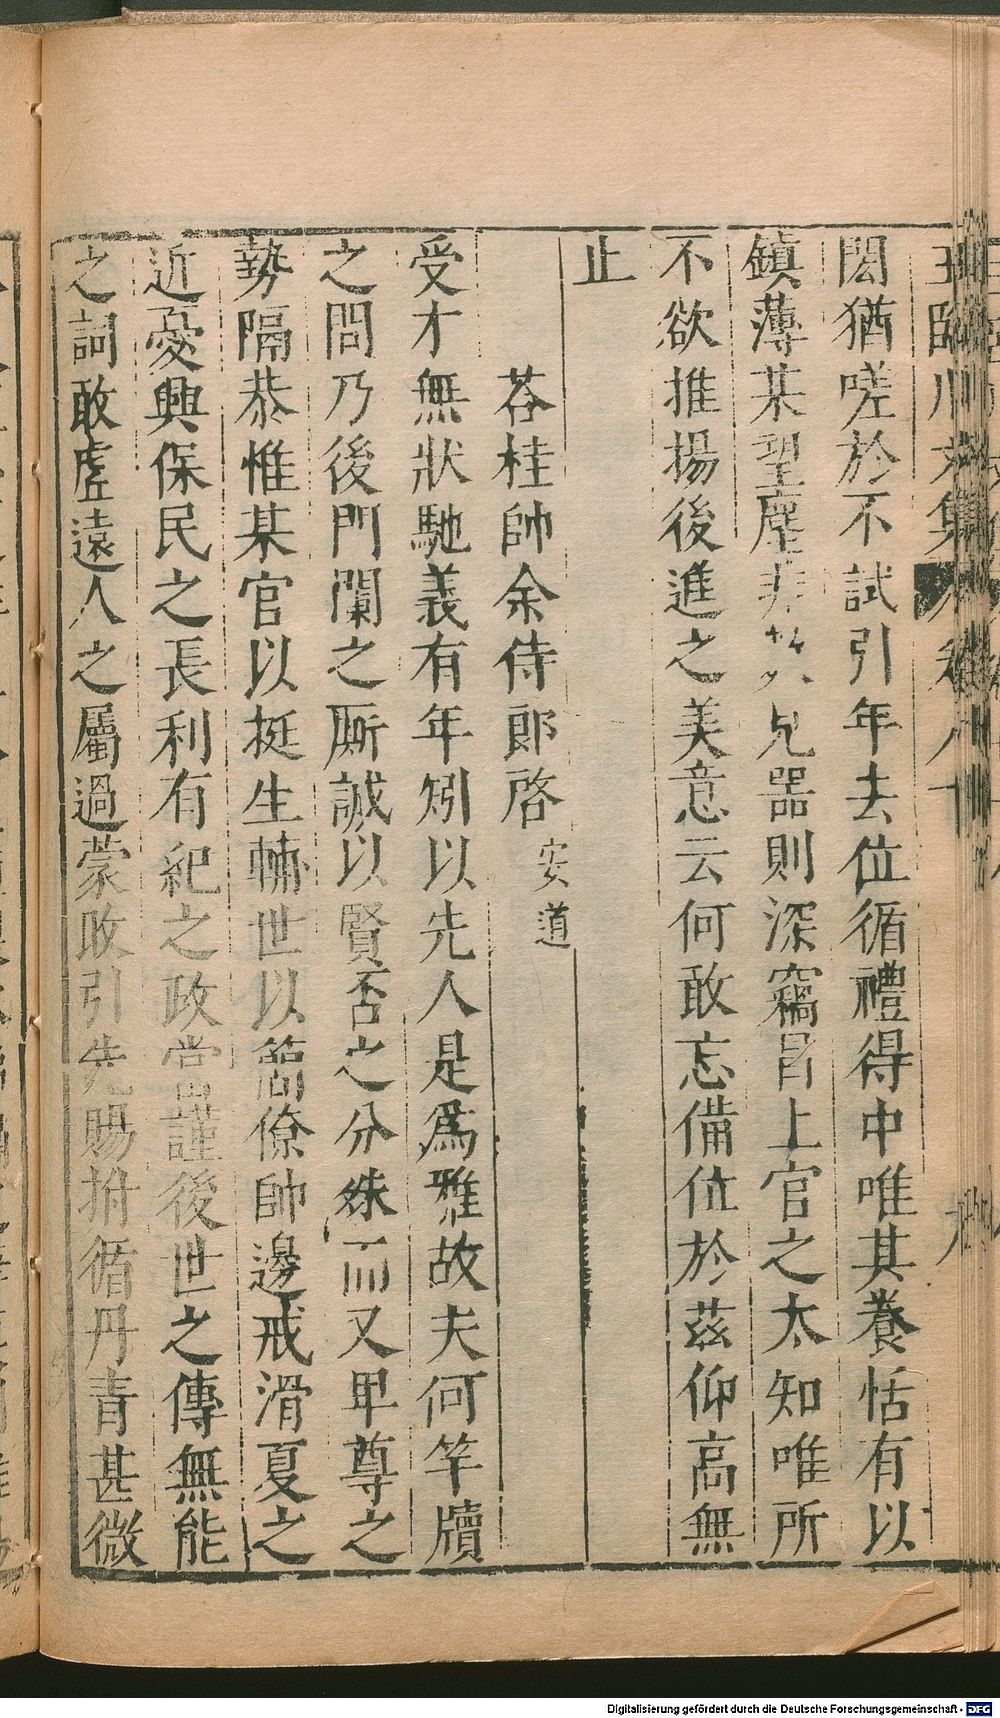 閎猶嗟於不試引年去位循禮得中唯其養恬有以
鎮薄某聖塵非兄器則深竊昌上官之太知唯所
不欲推揚後進之美意云何敢忘備位於茲仰高無
止
荅桂帥余侍郎啓 安道
受才無狀馳義有年矧以先人是爲雅故夫何竿牘
之問乃後門闌之厮誠以賢否之分殊而又卑尊之
勢隔恭惟某官以挺生輔世以簡僚帥邊戒滑夏之
近憂興保民之長利有紀之政當謹後世之傳無能
之詞敢虛遠人之屬過蒙敗引先賜拊循丹青甚微
Digitalisierung gefördert durch die Deutsche Forschungsgemeinschaft - DFG